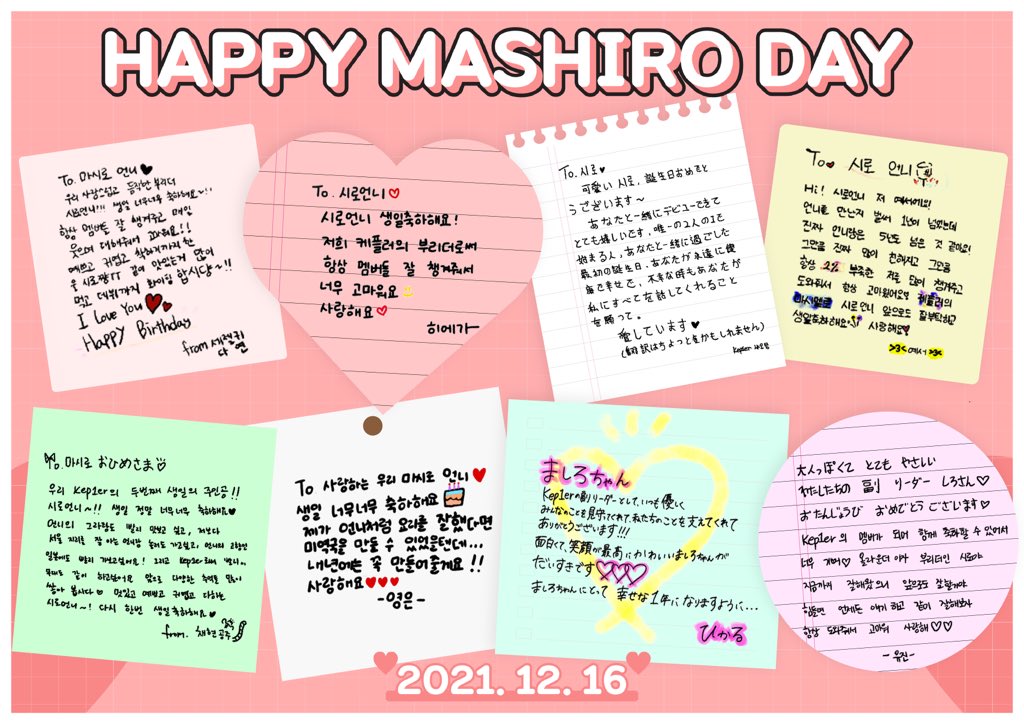 HAPPY MASHIRO DAY
To. 마시로 언니♥
우리 사랑스럽고 듬직한 부리더
시로언니!!! 생일 너무너무 축하해요~!!
항상 멤버들 잘 챙겨주고 매일
웃으며 대해줘서 고마워요!!
예쁘고 귀엽고 착하기까지 한
울 시로짱ㅠㅠ 같이 맛있는거 많이
먹고 데뷔까지 화이팅 합시당~!!
I love You
Happy Birthday
from
다연
To. 시로언니♡
시로언니 생일축하해요!
저희 케플러의 부리더로써
항상 멤버들 잘 챙겨줘서
너무 고마워요
사랑해요♡
히에가-
To. 시로♥
可愛いシロ、誕生日おめでと
うございます〜
あなたと一緒にデビューできて
とても嬉しいです。唯一の2人の1を
始まる人、あなたと一緒に過ごした
最初の誕生日、あなたが永遠に健
康で幸せで、不幸な時もあなたが
私にすべてを話してくれること
を願って。
愛しています♥
(翻訳はちょっと変かもしれません)
Kep1er 샤오팅
To♥ 시로 언니
Hi! 시로언니 저 예서예요!
언니를 만난지 벌써 1년이 넘었는데
진짜 언니랑은 5년도 넘은 것 같아요!
그만큼 진짜 많이 친해지고 그만큼
항상 2% 부족한 저를 많이 챙겨주고
도와줘서 항상 고마웠어요! 케플러의
마시멜로 시로언니 앞으로도 잘부탁하고
생일축하해요 사랑해요♥
>3< 예서 >3<
To. 마시로 おひめさま
우리 Kep1er의 두번째 생일의 주인공!!
시로언니~!! 생일 정말 너무너무 축하해요♡
언니의 그라탕도 빨리 맛보고 싶고, 저보다
서울 지리를 잘 아는 언니랑 놀러도 가고싶고, 언니의 고향인
일본에도 빨리 가보고싶어요! 그리고 Kep1er로써 언니와
무대도 같이 하고싶어요 앞으로 다양한 추억들 많이
쌓아 봅시다♡ 멋있고 예쁘고 귀엽고 다하는
시로언니~! 다시 한번 생일축하해요♡
from. 채현공주
To 사랑하는 우리 마시로 언니♥
생일 너무너무 축하해요
제가 언니처럼 요리를 잘했다면
미역국을 만들 수 있었을텐데...
내년에는 꼭 만들어줄게요!!
사랑해요♥♥♥
-영은-
ましろちゃん
Kep1erの副リーダーとして、いつも優しく
みんなのことを見守ってくれて、私たちのことを支えてくれて
ありがとうございます!!!
面白くて、笑顔が最高にかわいいましろちゃんが
だいすきです♡♡♡
ましろちゃんにとって 幸せな1年になりますように...
ひかる
大人っぽくて とても やさしい
わたしたちの 副 リーダー しろさん♡
おたんじょうび おめでとう ございます♡
Kep1er의 멤버가 되어 함께 축하할 수 있어서
너무 기뻐♡ 올라운더 이자 부리더인 시로야
지금까지 잘해왔으니 앞으로도 잘할거야
힘들면 언제든 얘기 하고 같이 잘해보자
항상 도와줘서 고마워 사랑해♡♡
-유진-
2021. 12. 16